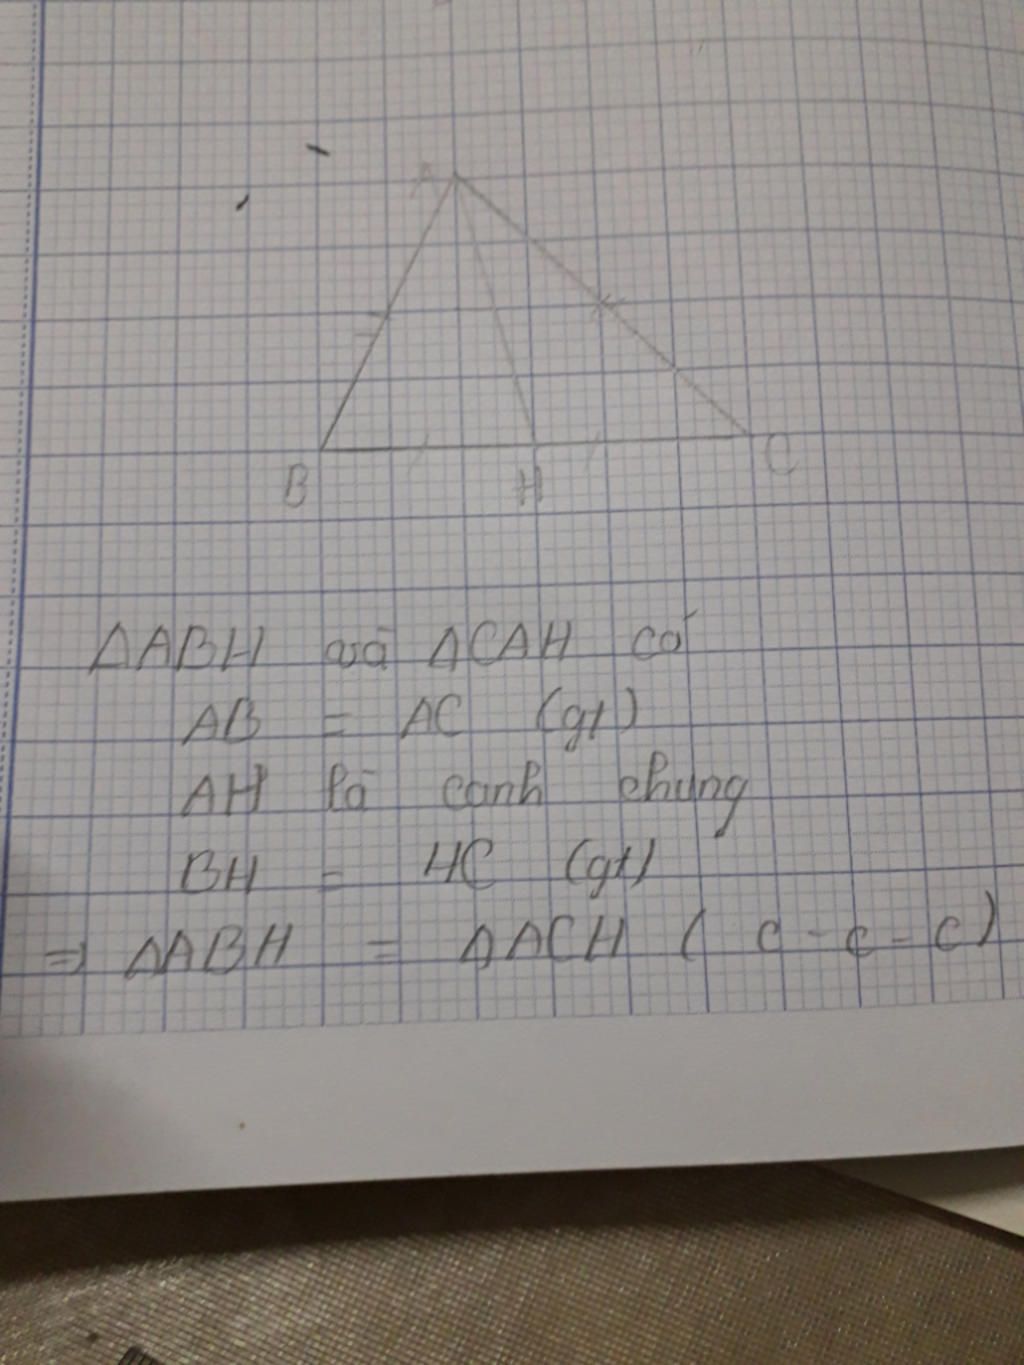 A
B
H
C
ΔABH và ΔCAH có
AB = AC (gt)
AH là canh chung
BH = HC (gt)
=> ΔABH = ΔACH ( c - c - c )